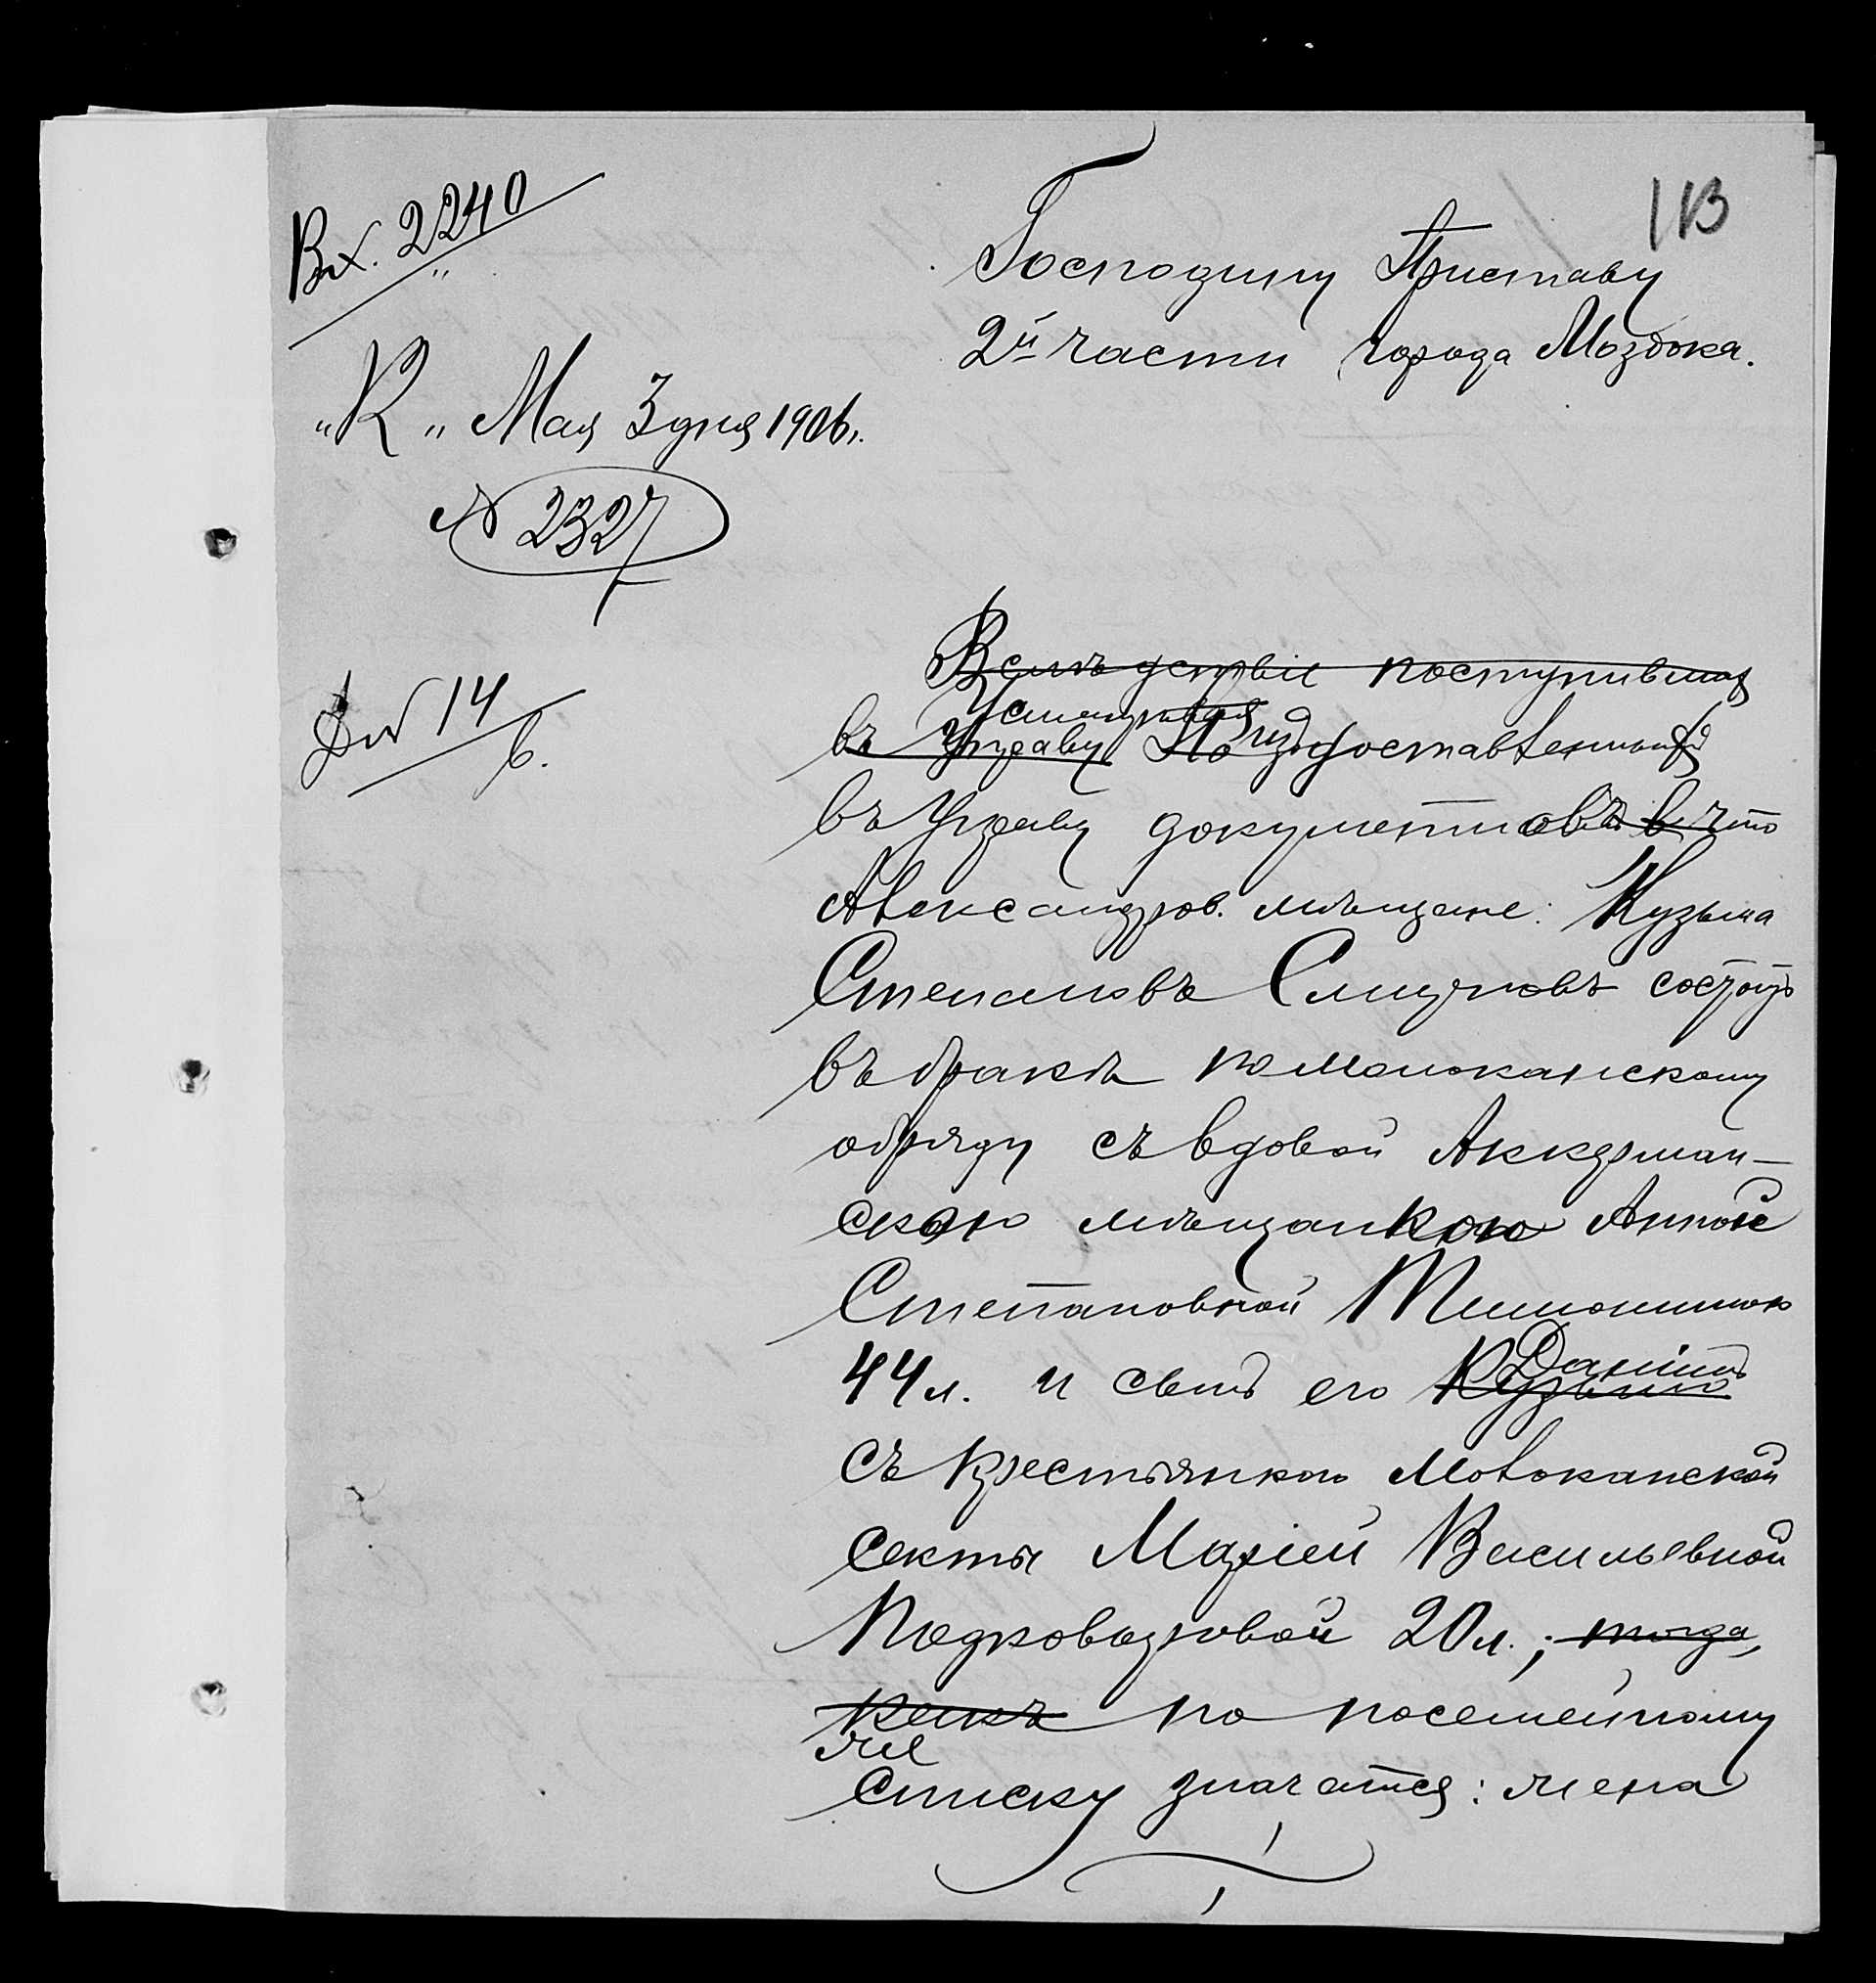 113
Вх. 2240
Господину Приставу
2й части города Моздока.
"К" Мая 3 дня 1906 г.
№ 2327
Вслѣдствіе поступившаго
Усматривая
въ Управу Изъ доставленныхъ
№ 14
въ Управу документовъ что
Александров. мѣщане: Кузьма
Степановъ состоитъ
въ бракѣ по молоканскому
обряду съ вдовой Аккерман-
скою мѣщанкою Анной
Степановной
44 л. и сынъ его Кузьмы
Даніилъ
съ крестьянкою молоканской
секты Маріей Васильевной
20 л.; тогда
какъ по посемейному
же
списку значатся: жена